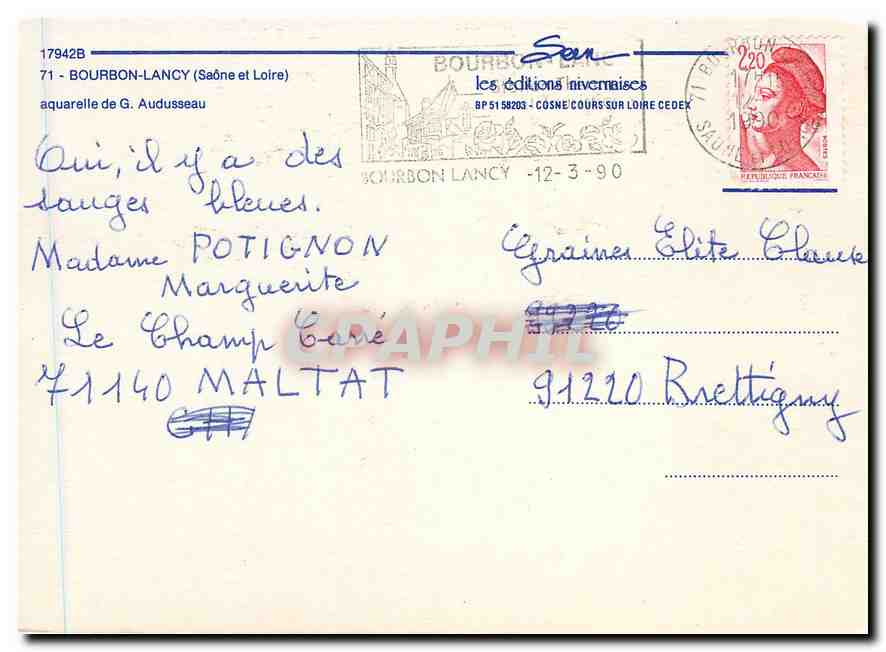 17942B
71 - BOURBON-LANCY (Saône et Loire)
aquarelle de G. Audusseau
BOURBON-LANC
BOURBON LANCY -12-3-90
les éditions nivernaises
BP 51 58203 - COSNE COURS SUR LOIRE CEDEX
2,20
RÉPUBLIQUE FRANÇAISE
71 BOURBON
17H
1990
Oui, il y a des
sauges bleues.
Madame POTIGNON
Marguerite
Le Champ Carré
71140 MALTAT
Graines Elite Clause
91220 Brettigny
CPAPHIL